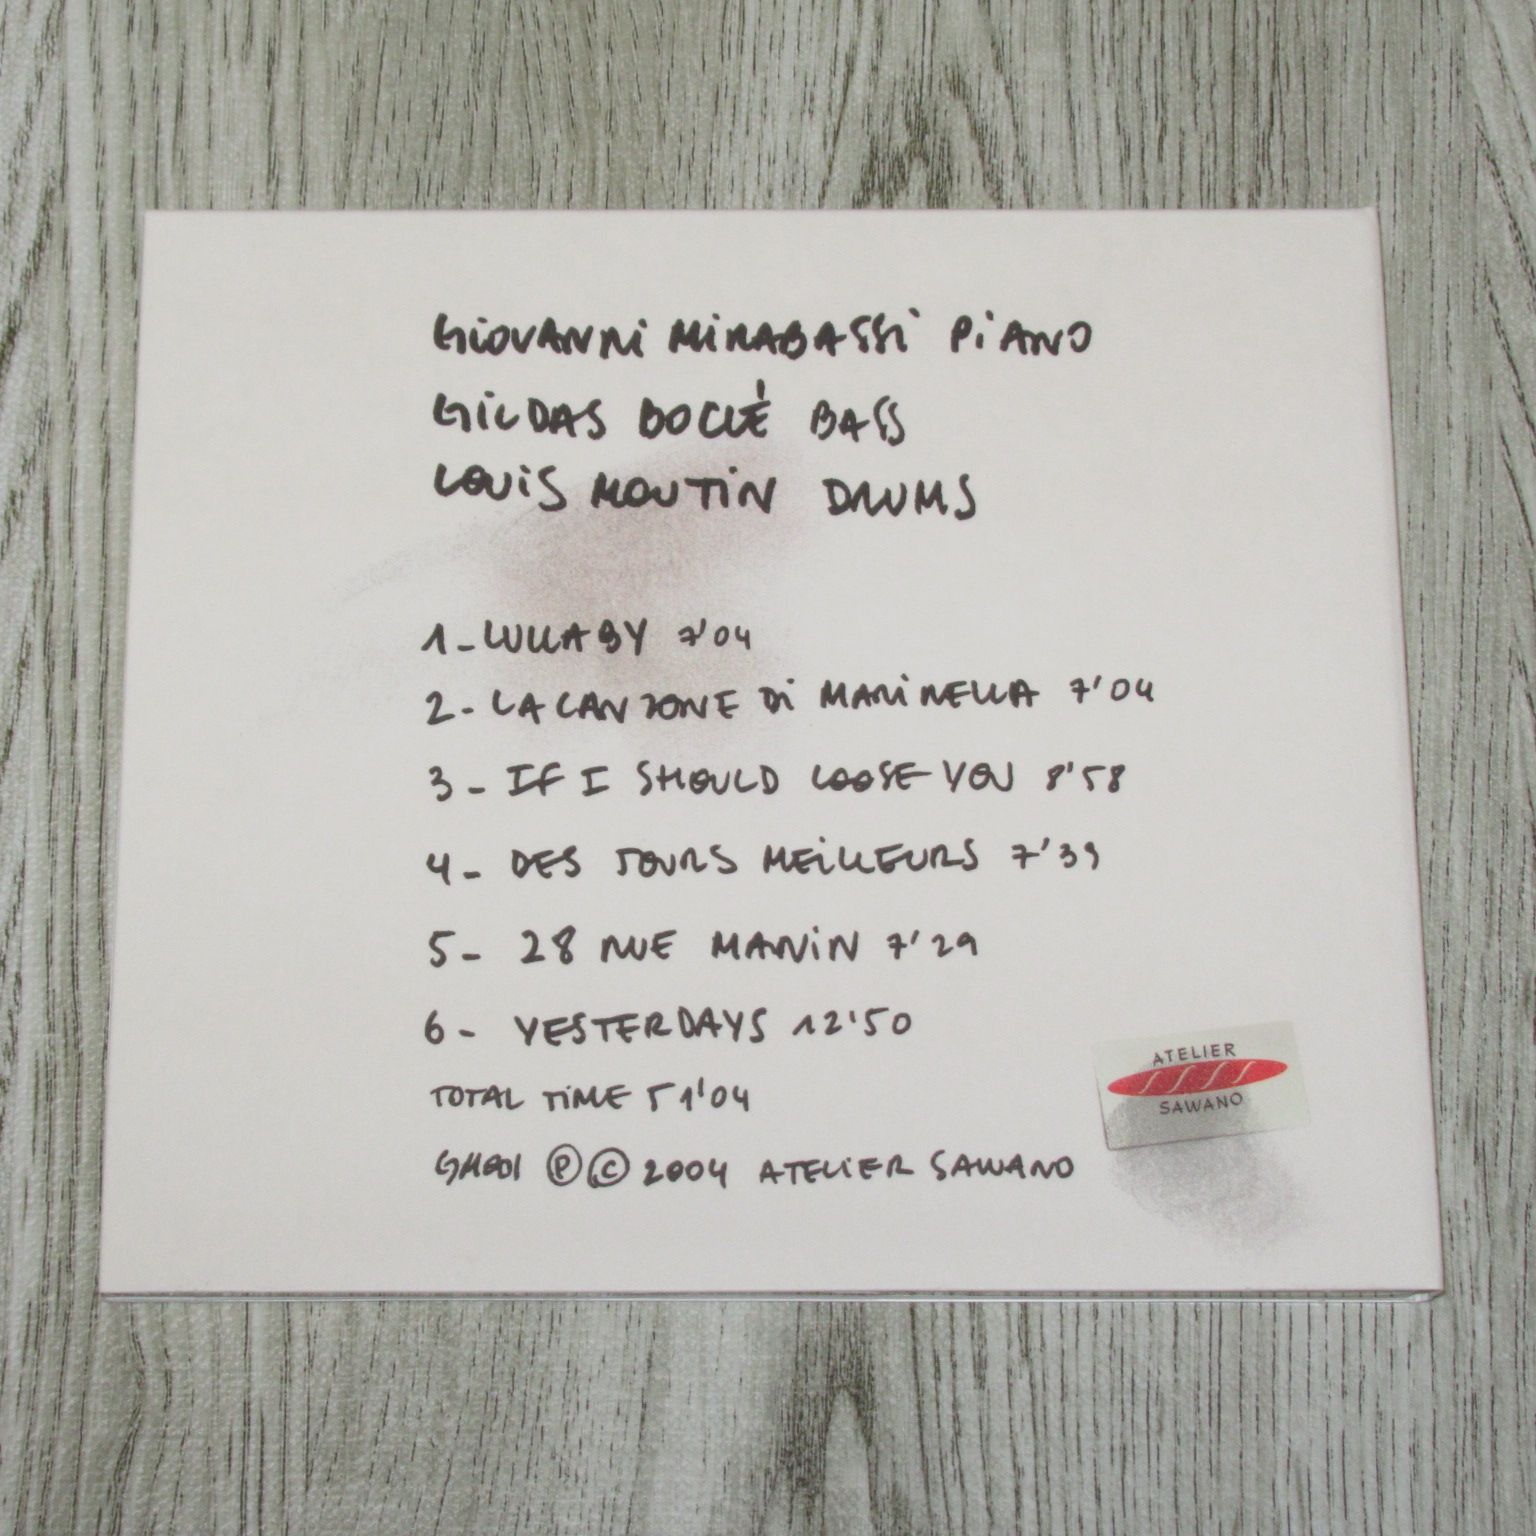 GIOVANNI MIRABASSI PIANO
GILDAS BOCLÉ BASS
LOUIS MOUTIN DRUMS
1 - LULLABY 7'04
2 - LA CANZONE DI MARINELLA 7'04
3 - IF I SHOULD LOOSE YOU 8'58
4 - DES JOURS MEILLEURS 7'39
5 - 28 RUE MANIN 7'29
6 - YESTERDAYS 12'50
TOTAL TIME 51'04
GM001 Ⓟ © 2004 ATELIER SAWANO
ATELIER
SAWANO